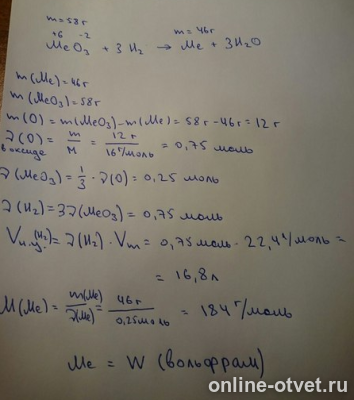 m=58г m=46г
+6 -2
MeO₃ + 3H₂ → Me + 3H₂O
m(Me)=46г
m(MeO₃)=58г
m(O) = m(MeO₃)-m(Me) = 58г - 46г = 12г
ν(O) = m/M = 12г/16г/моль = 0,75 моль
в оксиде
ν(MeO₃) = 1/3 · ν(O) = 0,25 моль
ν(H₂) = 3ν(MeO₃) = 0,75 моль
Vн.у.(H₂) = ν(H₂) · Vm = 0,75моль · 22,4л/моль =
= 16,8л
M(Me) = m(Me)/ν(Me) = 46г/0,25моль = 184г/моль
Me = W (вольфрам)
online-otvet.ru